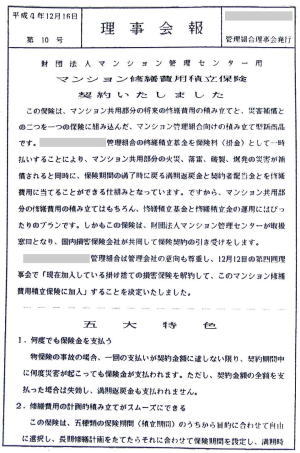 平成4年12月16日
第 10 号
理事会報
管理組合理事会発行
財団法人マンション管理センター用
マンション修繕費用積立保険
契約いたしました
この保険は、マンション共用部分の将来の修繕費用の積み立てと、災害補償と
の二つを一つの保険に組み込んだ、マンション管理組合向けの積み立て型新商品
です。管理組合の修繕積立基金を保険料（掛金）として一時
払いすることにより、マンション共用部分の火災、落雷、破裂、爆発の災害が補
償されると同時に、保険期間の満了時に戻る満期返戻金と契約者配当金とを修繕
費用に当てることができる仕組みとなっています。ですから、マンション共用部
分の修繕費用の積み立てはもちろん、修繕積立基金と修繕積立金の運用にはぴっ
たりのプランです。しかもこの保険は、財団法人マンション管理センターが取扱
窓口となり、国内損害保険会社が共同して保険契約の引き受けをします。
管理組合は管理会社の意向も尊重し、12月12日の第四回理
事会で「現在加入している掛け捨ての損害保険を解約して、このマンション修繕
費用積立保険に加入」することを決定いたしました。
五大特色
1．何度でも保険金を支払う
物保険の事故の場合、一回の支払いが契約金額に達しない限り、契約期間中
に何度災害が起こっても保険金が支払われます。ただし、契約金の全額を支
払った場合は失効し、満期返戻金も支払われません。
2．修繕費用の計画的積み立てがスムーズにできる
この保険は、五種類の保険期間（積立期間）のうちから目的に合わせて自由
に選択し、長期修繕計画をたてたらそれに合わせて保険期間を設定し、満期時